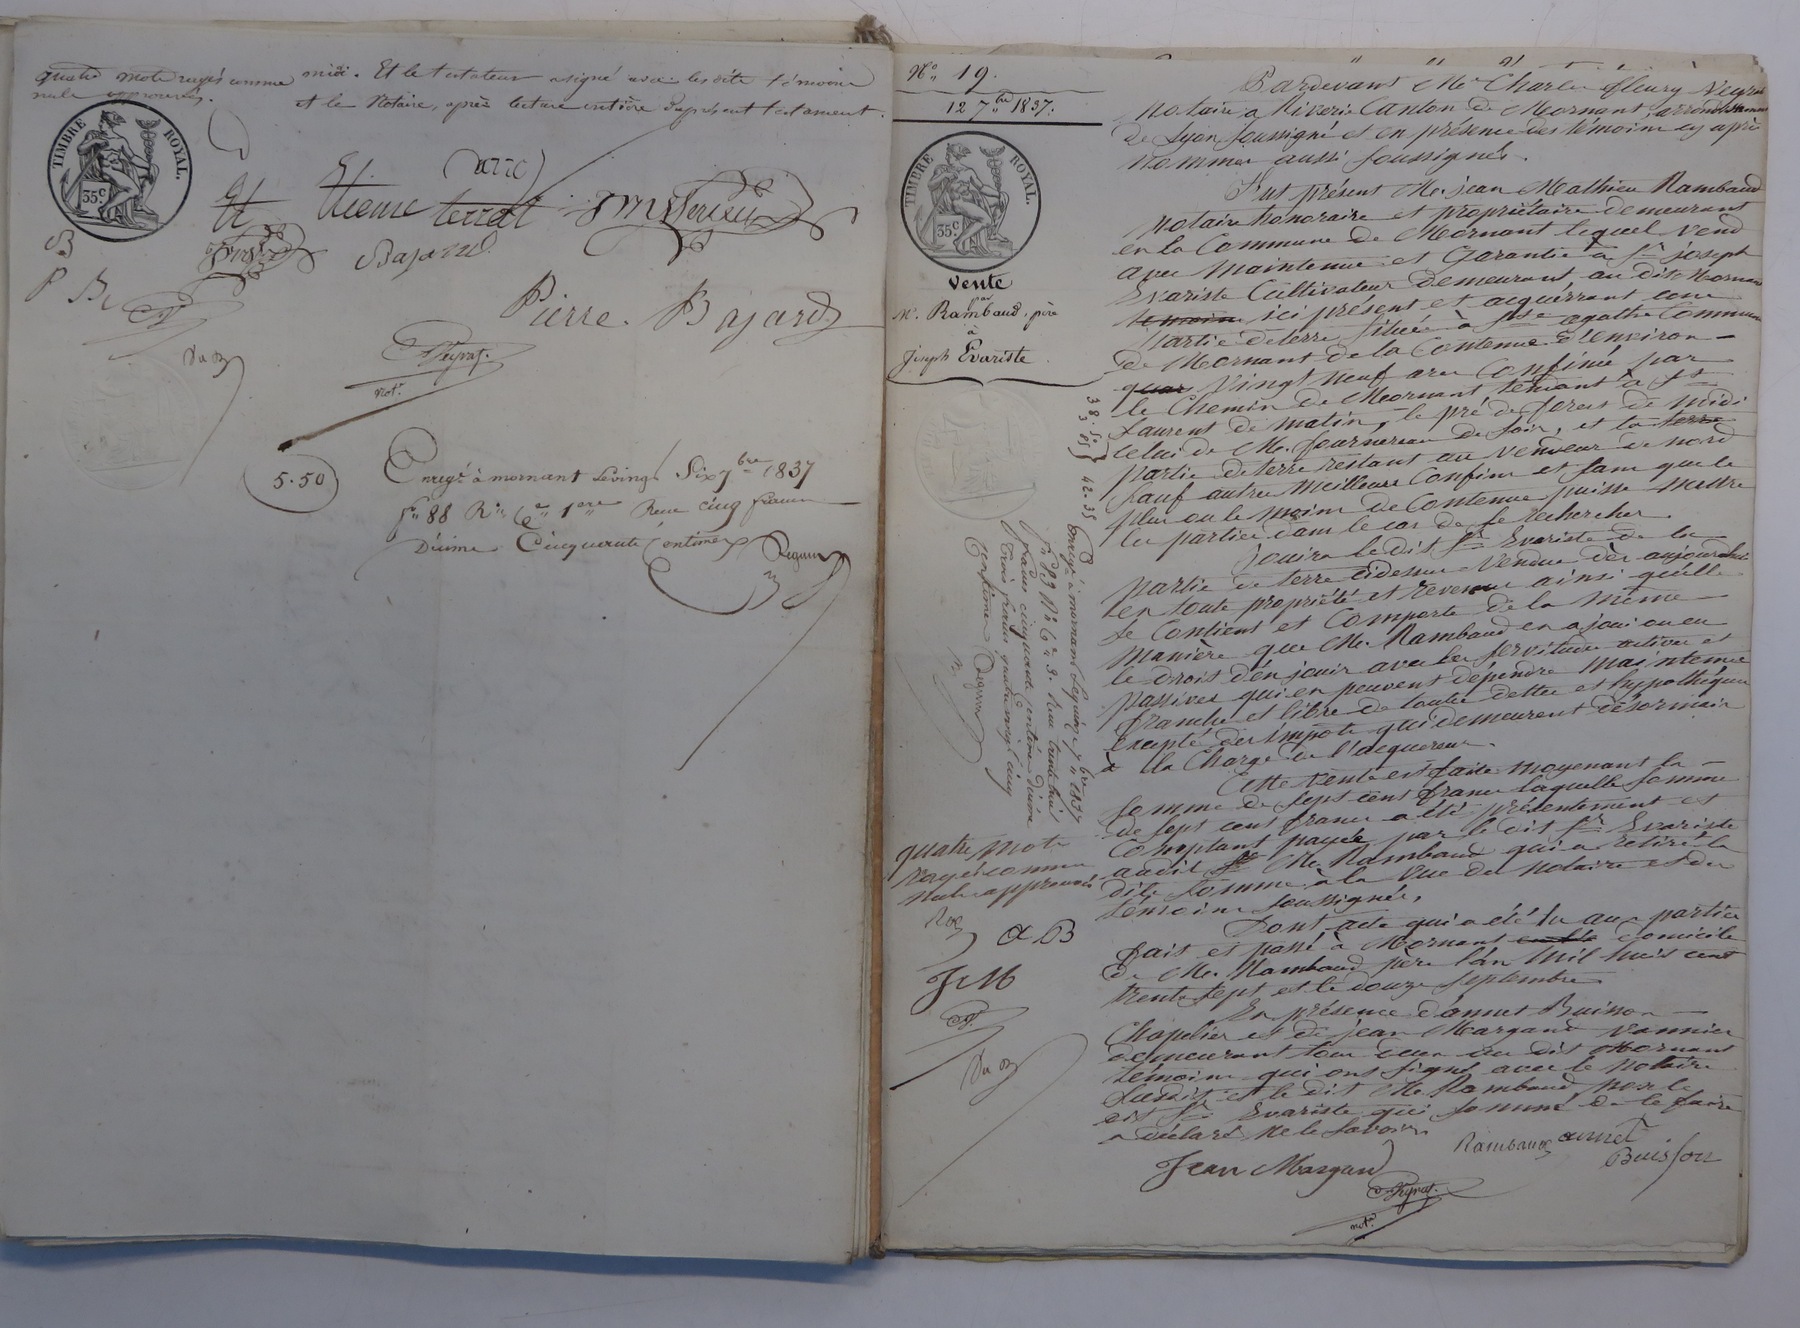 quatre mots rayés comme
nuls approuvés.
midi. Et le testateur a signé avec les dits témoins
et le Notaire, après lecture entière du présent testament.
TIMBRE ROYAL.
35c
Et
Etienne terrat
Bajard
B
P B
Pierre Bajard
Peyrat.
not.
5.50
Enregé à mornant le vingt Six 7bre 1837
fo 88 Ro Ce 1ere Reçu cinq francs
Décime Cinquante Centimes Deguin
No 19.
12 7bre 1837.
TIMBRE ROYAL.
35c
Vente
Mr. Rambaud, père
par
à
Joseph Evariste
38.50
3 85
42.35
Enregé à mornant le quinze 7bre 1837
fo 83 Ro Ce 3. Reçu trente huit
francs cinquante centimes décime
trois francs quatre vingt cinq
centimes Deguin
quatre mots
rayés comme
nuls approuvés
a B
J M
Pardevant Me Charles fleury Peyrat
Notaire à Riverie Canton de Mornant, arrondissement
de Lyon soussigné et en présence des témoins cy après
Nommés aussi soussignés.
Fut présent Me. jean Mathieu Rambaud
notaire honoraire et propriétaire demeurant
en la Commune de Mornant lequel vend
avec Maintenue et Garantie à sr. joseph
Evariste Cultivateur demeurant au dit Mornant
ici présent et acquérrant une
partie de terre située à Ste agathe Commune
de Mornant de la Contenue d'environ
vingt neuf ares Confinée par
le Chemin de Mornant tendant à St
Laurent de matin, le pré de forest de midi
celui de Mr. fournereau de soir, et la terre
partie de terre restant au vendeur de nord
sauf autres Meilleurs Confins et sans que le
plus ou le moins de Contenue puisse mettre
les parties dans le cas de se rechercher.
Jouira le dit sr. Evariste de la
partie de terre cidessus vendue dès aujourd'hui
en toute propriété et revenu ainsi qu'elle
se Contient et Comporte de la même
Manière que Mr. Rambaud en a joui ou eu
le droit d'en jouir avec les servitudes actives et
passives qui en peuvent dépendre Maintenue
franche et libre de toutes dettes et hypothèques
excepté des impots qui demeurent désormais
à la Charge de l'acquereur.
Cette vente est faite moyenant la
somme de sept cent francs laquelle somme
de sept cent francs a été présentement et
Comptant payée par le dit sr. Evariste
audit Me. Rambaud qui a retiré la
dite somme à la vue du notaire et des
témoins soussignés.
Dont acte qui a été lu aux parties
fait et passé à Mornant domicile
de Me. Rambaud père l'an Mil huit cent
trente sept et le douze septembre
En présence d'annet Buisson
Chapelier et de jean Margand vannier
demeurant tous deux au dit Mornant
témoins qui ont signé avec le notaire
susdit et le dit Me Rambaud, non le
dit sr. Evariste qui sommé de le faire
a déclaré ne le savoir.
Rambaud annet
Buisson
Jean Margand
Peyrat.
not.